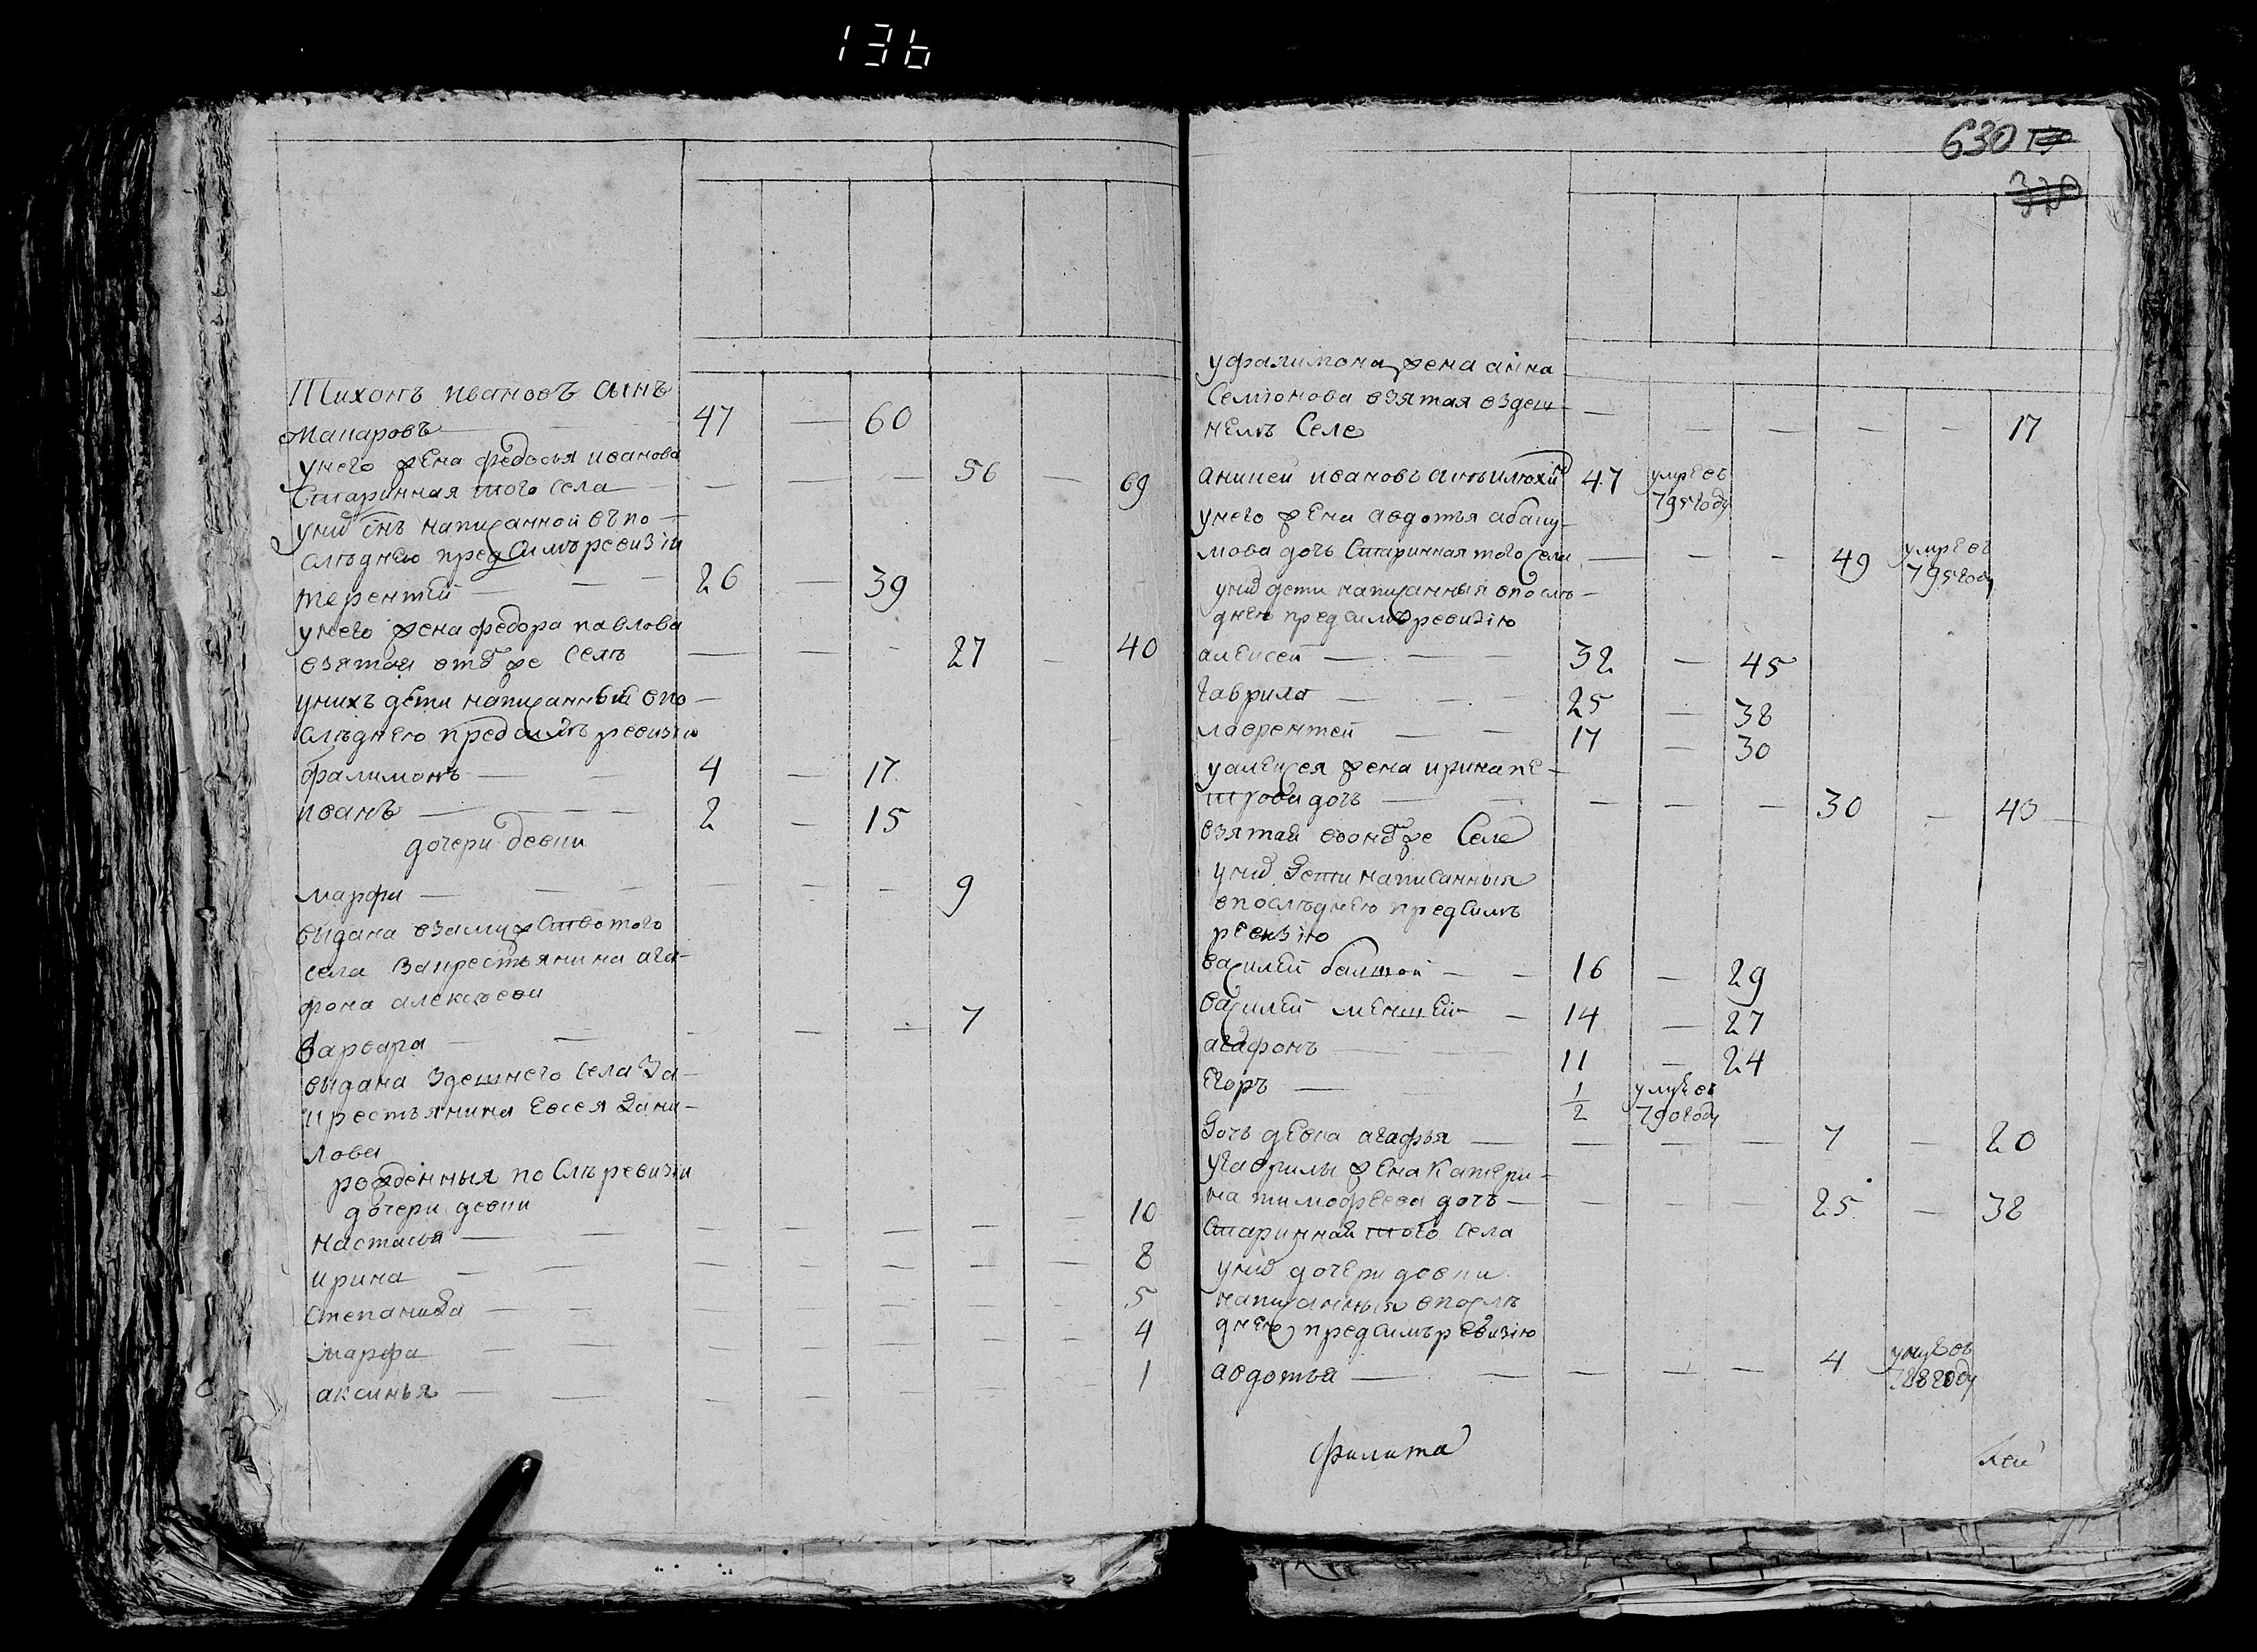 136
Тихонъ ивановъ сынъ
Макаровъ — 47 — 60
унего жена федосья иванова
Старинная того села — — — — 56 — 69
униⷯ снъ написанной въ по-
слѣднею предсимъ ревизiи
терентей — 26 — 39
унего жена федора павлова
взятая втоⷨ же селѣ — — — 27 — 40
унихъ дѣти написанныя впо-
слѣднею предсимъ ревизiю
фалимонъ — 4 — 17
иванъ — 2 — 15
дочери девки
марфа — — — — 9
выдана взамужство того
села закрестьянина ага-
фона алексѣева
варвара — — — — 7
выдана здешнего села за-
крестьянина евсея дани-
лова
рожденныя послѣ ревизiи
дочери девки
настасья — — — — — — 10
ирина — — — — — — 8
степанида — — — — 5
марфа — — — — — — 4
аксинья — — — — — — 1
630
320
уфалимона жена анна
Семiонова взятая вздеш-
немъ Селе — — — — — 17
аникей ивановъ сынъ илюхинъ 47 умре въ
795 году
унего жена авдотья абаку-
мова дочь Старинная того села — — — 49 умре въ
795 году
униⷯ дети написанныя впослѣ-
днею предсимъ ревизiю
алексей — 32 — 45
гаврила — 25 — 38
лаврентей — 17 — 30
уалексея жена ирина пе-
трова дочь — — — — 30 — 43
взятая вонⷨ же Селе
униⷯ дети написанныя
впослѣднею предсимъ
ревизiю
василей балшой — 16 — 29
василей меншей — 14 — 27
агафонъ — 11 — 24
егоръ — 1/2 умре въ
790 году
дочь девка агафья — — — — 7 — 20
угаврилы жена катери-
на тимофеева дочь — — — — 25 — 38
Старинная того села
униⷯ дочери девки
написанныя впослѣ
днею предсимъ ревизiю
авдотья — — — — 4 умре въ
788 году
Филипа